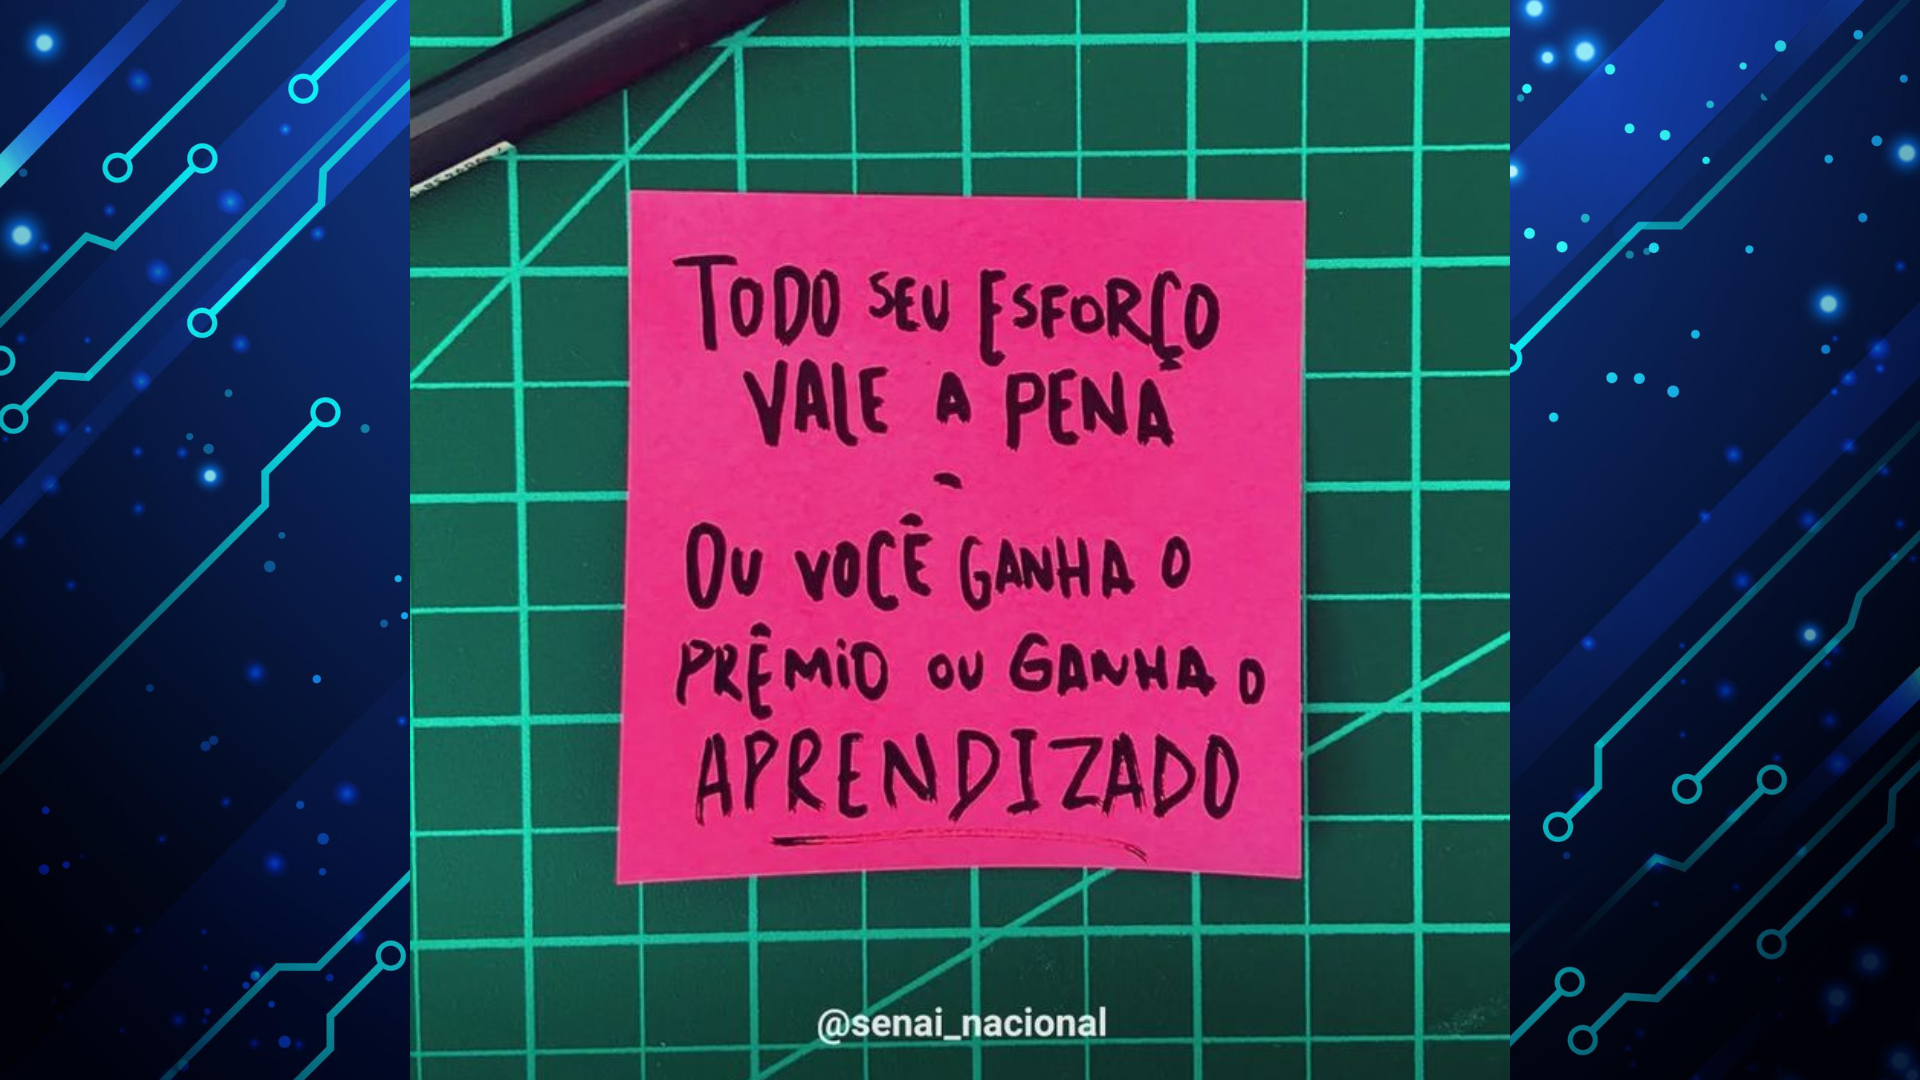 TODO SEU ESFORÇO
VALE A PENA
-
OU VOCÊ GANHA O
PRÊMIO OU GANHA O
APRENDIZADO
@senai_nacional